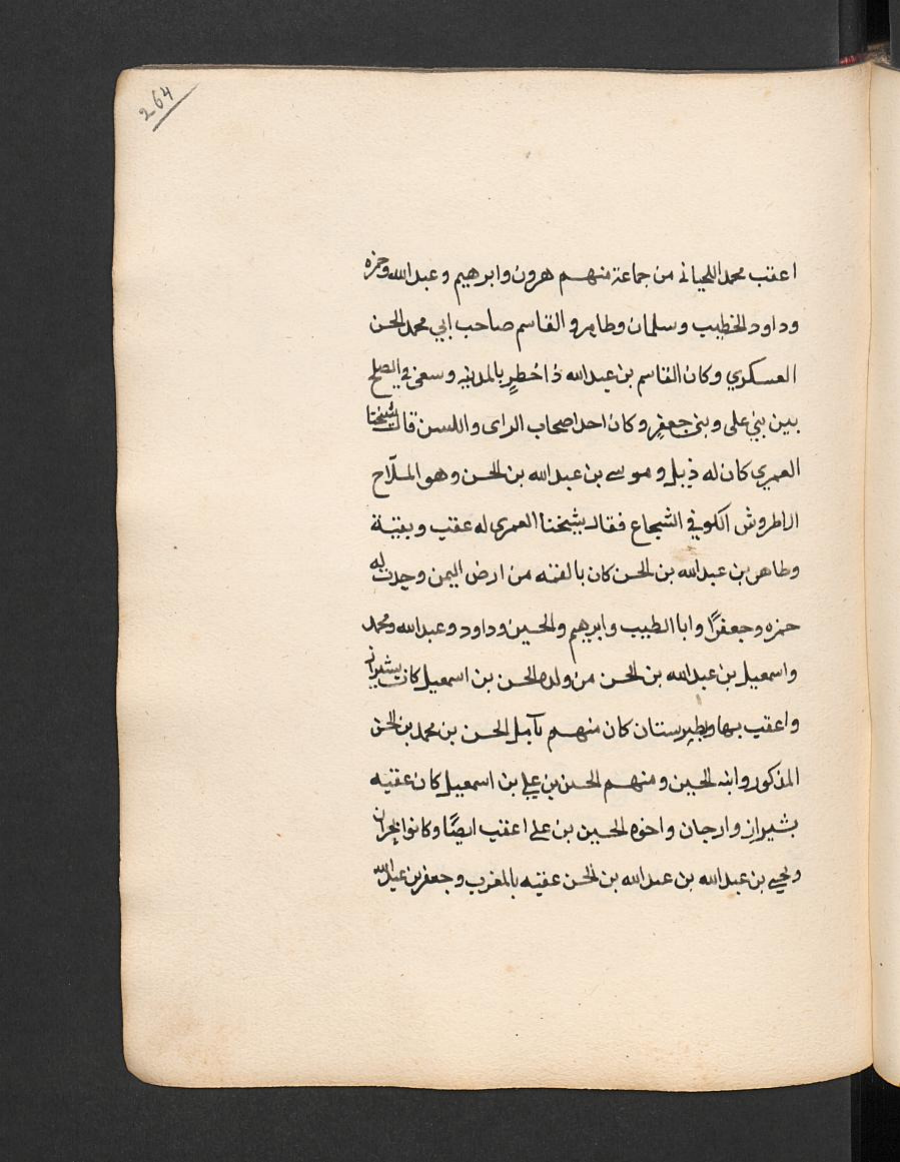 264
اعقب محمد اللحياني من جماعة منهم هرون وابرهيم وعبدالله وحمزه
وداود الخطيب وسلمان وطاهر والقاسم صاحب ابي محمد الحسن
العسكري وكان القاسم بن عبدالله ذا خطرٍ بالمدينه وسعى في الصلح
بين بني على وبني جعفر وكان احد اصحاب الراى واللسن قال شيخنا
العمري كان له ذيل وموسى بن عبدالله بن الحسن وهو الملّاح
الاطروش الكوفي الشجاع فقال شيخنا العمرى له عقب وبقية
وطاهر بن عبدالله بن الحسن كان بالفته من ارض اليمن وجدت له
حمزه وجعفرًا وابا الطيب وابرهيم والحسين وداود وعبدالله ومحمد
واسمعيل بن عبدالله بن الحسن من ولده الحسن بن اسمعيل كان بشيراز
واعقب بها وبطبرستان كان منهم بآمل الحسن بن محمد بن الحسن
المذكور وابنه الحسين ومنهم الحسن بن علي بن اسمعيل كان عقبه
بشيراز وارجان واخوه الحسين بن على اعقب ايضًا وكانوا بجران
ويحيى بن عبدالله بن عبدالله بن الحسن عقبه بالمغرب وجعفر بن عبيدالله